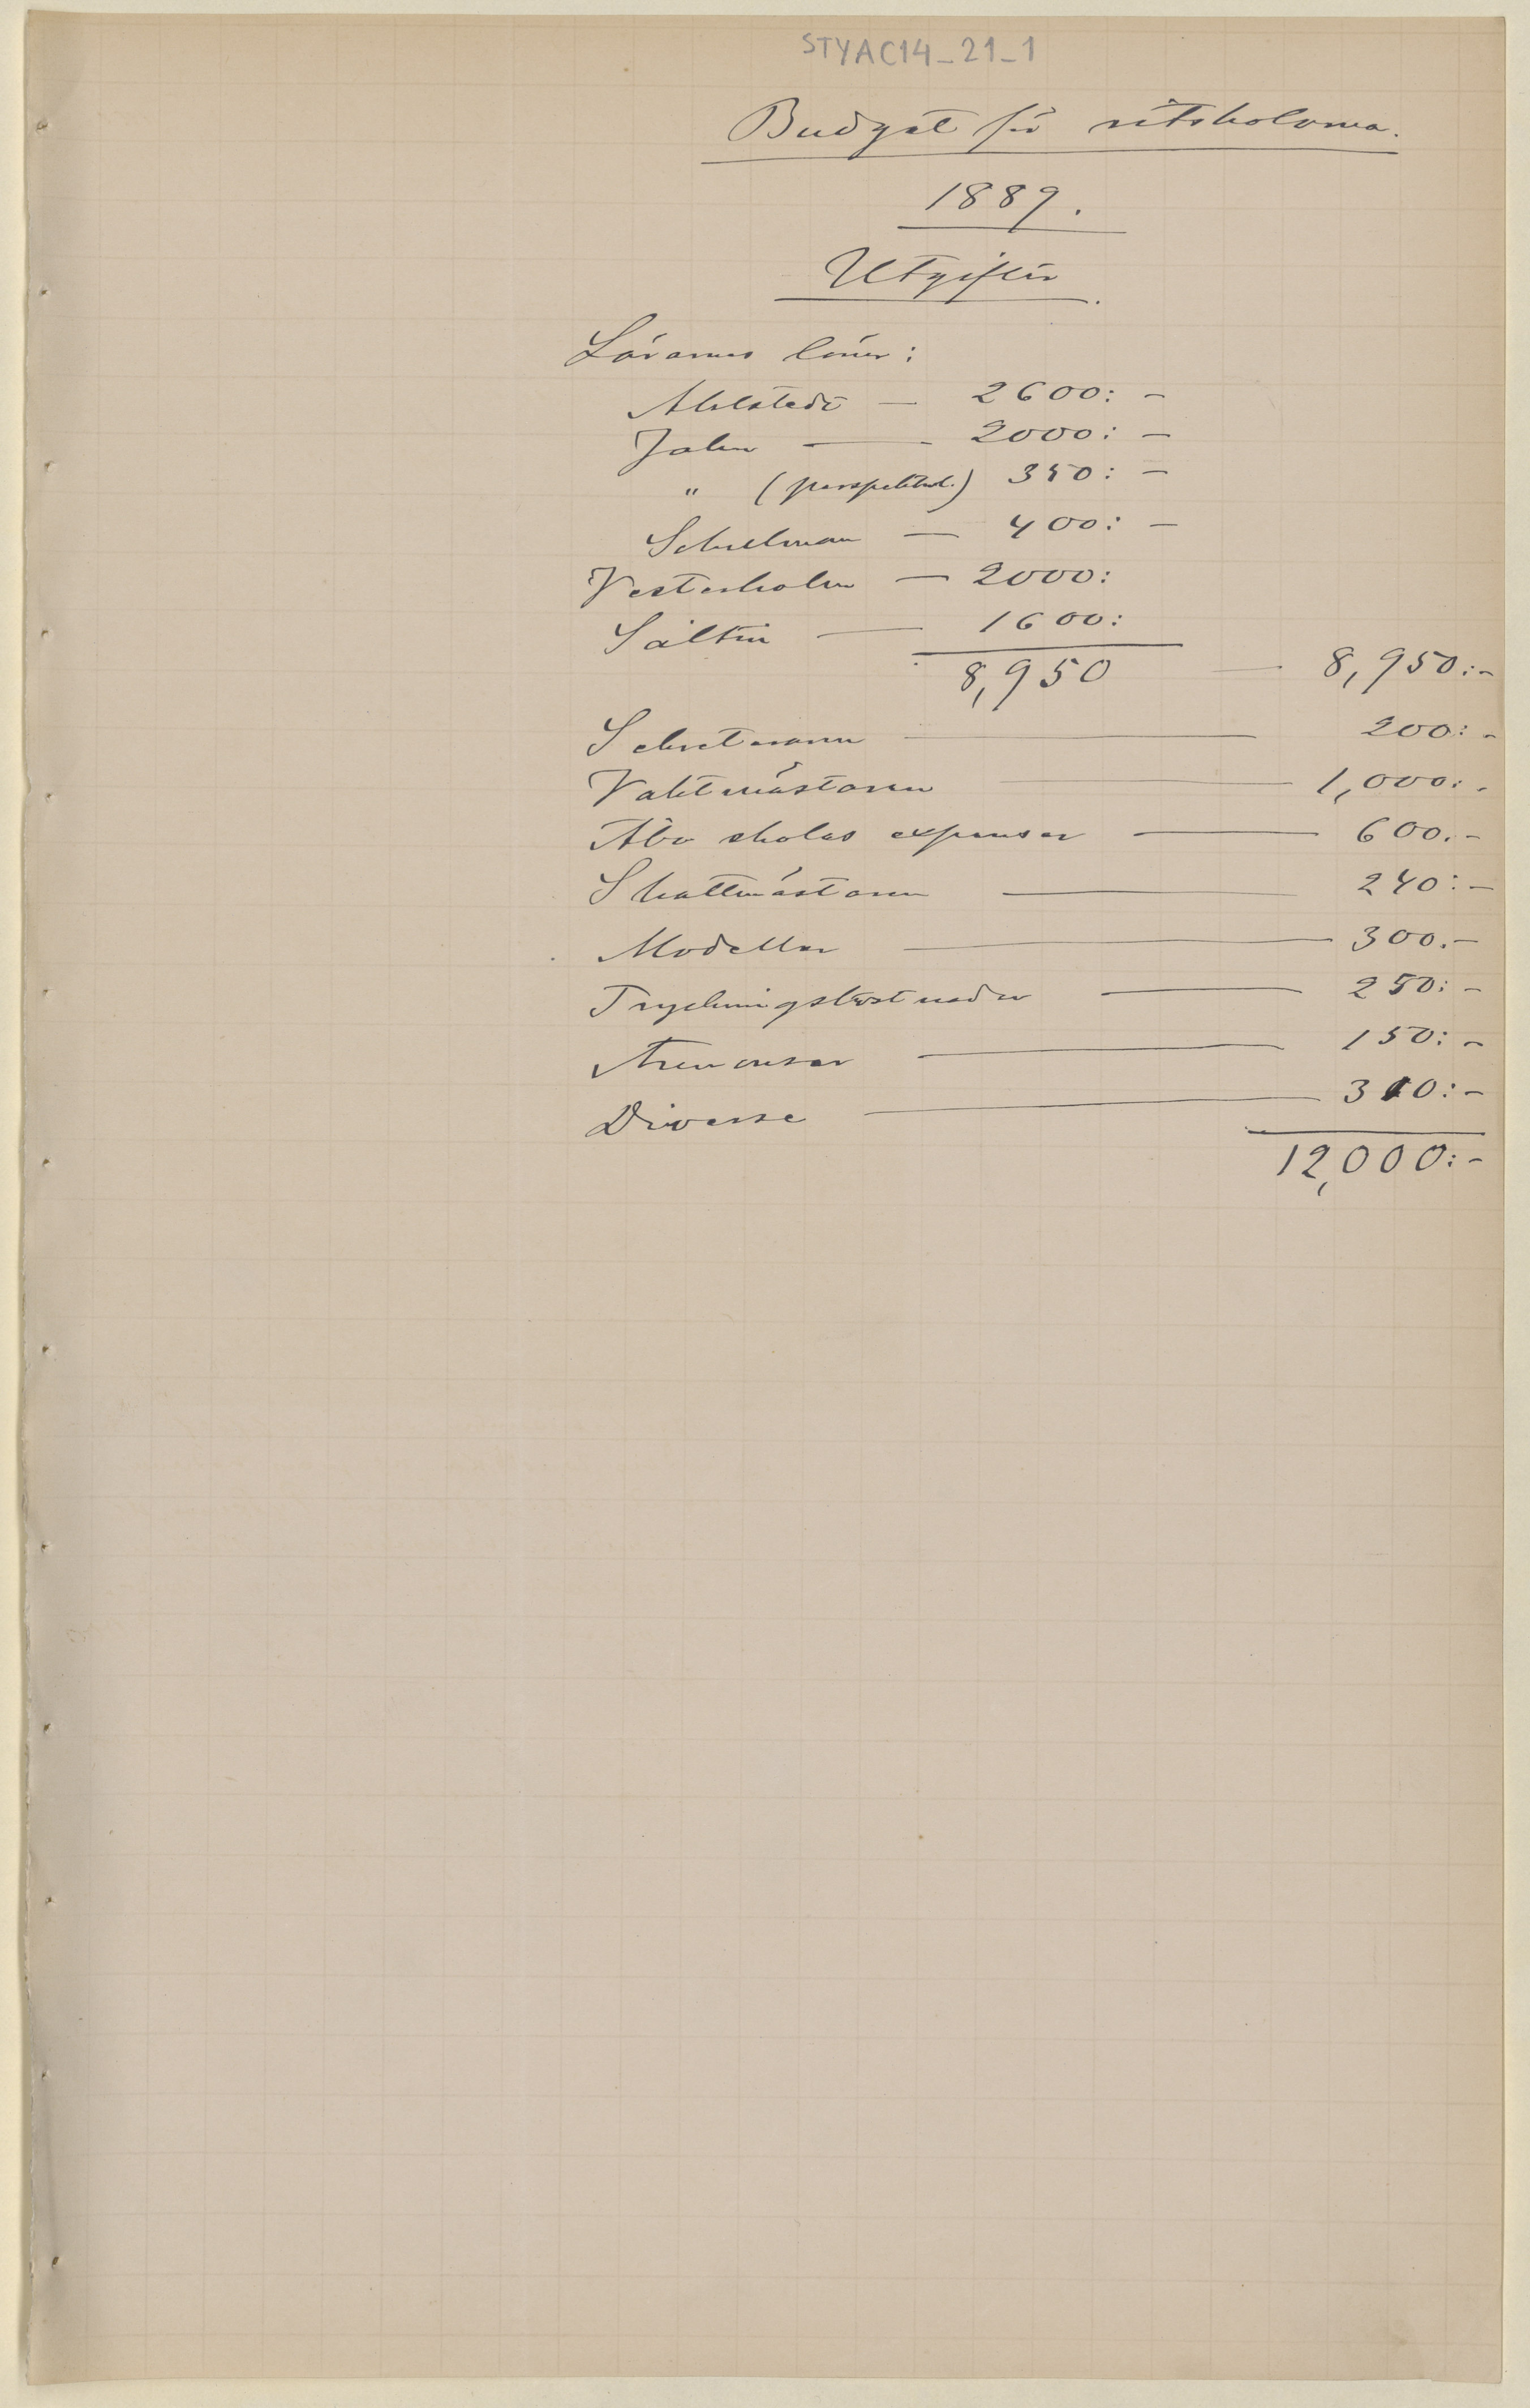 STYAC14_21_1
Budget för ritskolorna.
1889.
Utgifter.
Lärarnes löner:
Ahlstedt — 2600: –
Jahn — 2000: –
" (perspektivl.) 350: –
Schulman — 400: –
Vesterholm — 2000:
Sältin — 1600:
8,950 — 8,950: –
Sekreteraren — 200: –
Vaktmästaren — 1,000: –
Åbo skolas expenser — 600. –
Skattmästaren — 240: –
Modeller — 300. –
Tryckningskostnader — 250: –
Annonser — 150: –
Diverse — 310: –
12,000: –